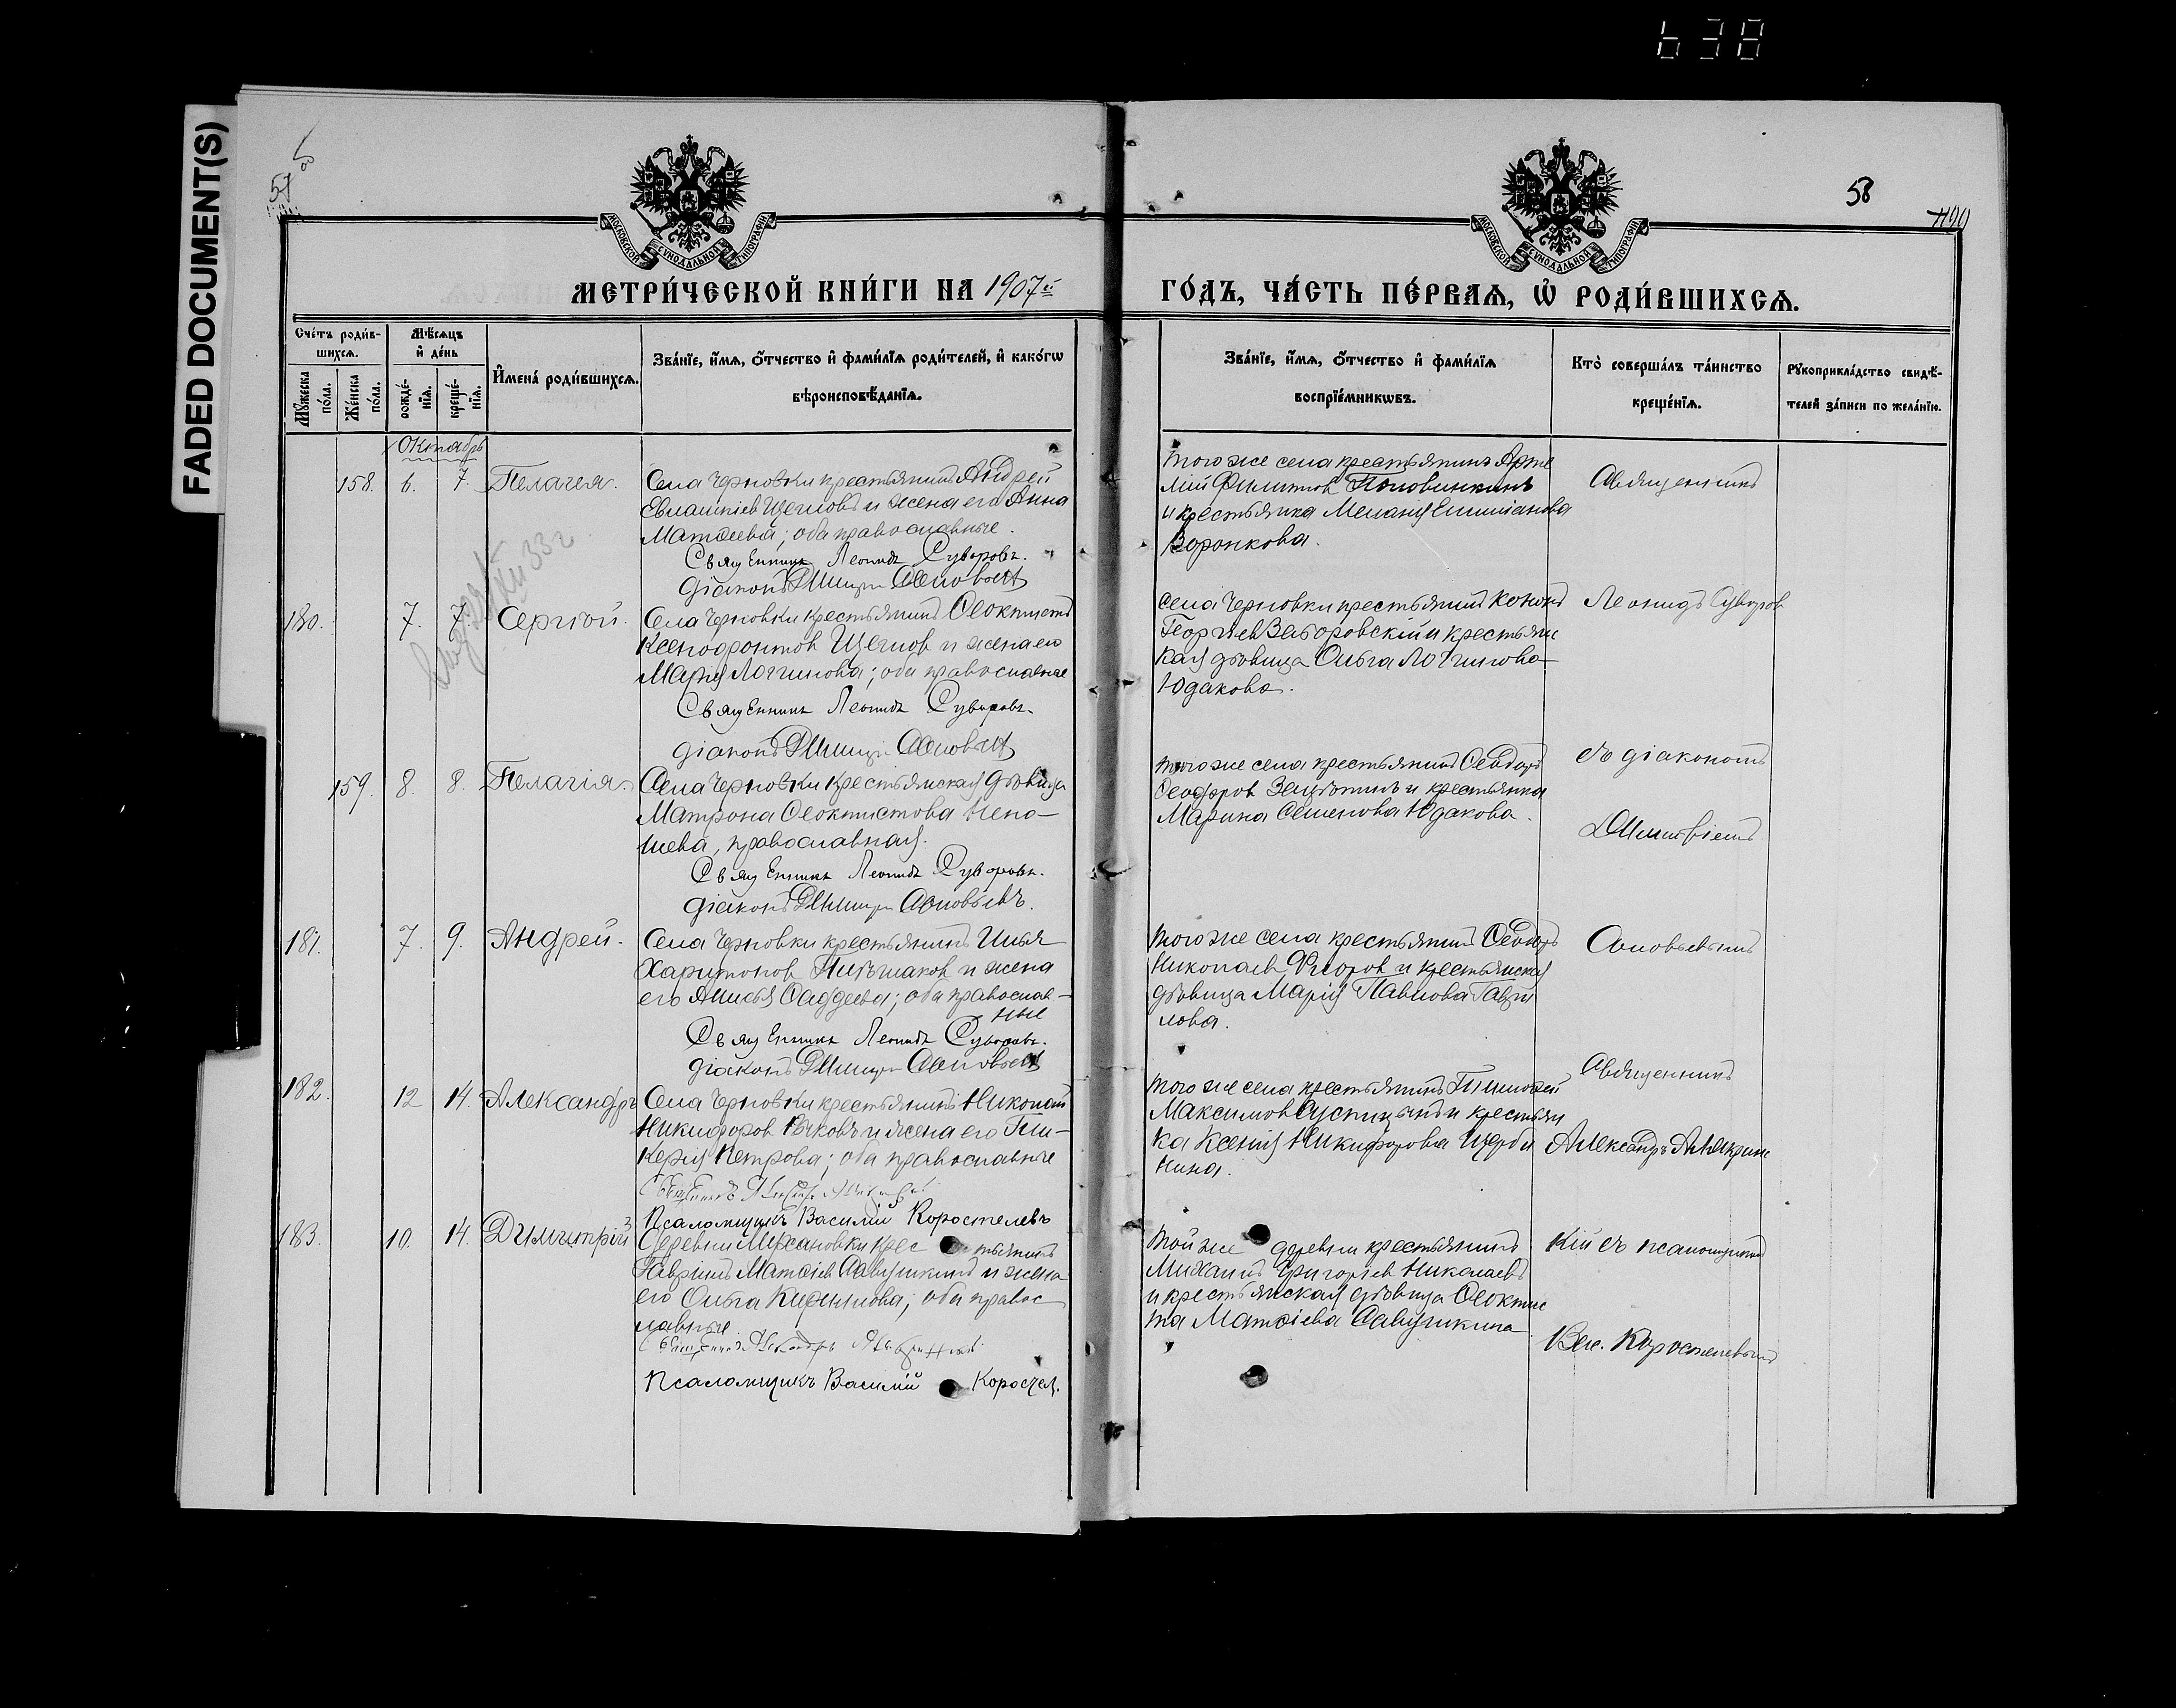 638
FADED DOCUMENT(S)
57 об
58
1190
МОСКОВСКОЙ СѴНОДАЛЬНОЙ ТИПОГРАФІИ
МОСКОВСКОЙ СѴНОДАЛЬНОЙ ТИПОГРАФІИ
МЕТРИ́ЧЕСКОЙ КНИ́ГИ НА 1907й
ГО́ДЪ, ЧА́СТЬ ПЕ́РВАѦ, Ѡ҆ РОДИ́ВШИХСѦ.
Сче́тъ роди́в-
шихсѧ.
Мꙋ́жеска
по́ла.
Же́нска
по́ла.
Мѣ́сѧцъ
и҆ де́нь
рожде́-
нїѧ.
креще́-
нїѧ.
И҆мена̀ роди́вшихсѧ.
Зва́нїе, и҆́мѧ, ѻ҆́тчество и҆ фами́лїѧ роди́телей, и҆ како́гѡ
вѣроисповѣ́данїѧ.
Зва́нїе, и҆́мѧ, ѻ҆́тчество и҆ фами́лїѧ
воспрїе́мникѡвъ.
Кто̀ соверша́лъ та́инство
креще́нїѧ.
Рꙋкоприкла́дство свидѣ́-
телей за́писи по жела́нїю.
Октябрь
158. 6. 7. Пелагея.
Села Черновки крестьянинъ Андрей
Евлампіевъ Щегловъ и жена его Анна
Матѳеева; оба православные.
Священникъ Леонидъ Суворовъ.
Діаконъ Димитрій Соловьевъ
того же села крестьянинъ Арте
мій Филипповъ Половинкинъ
и крестьянка Меланія Емиліанова
Воронкова.
Священникъ
180. 7. 7. Сергѣй.
Села Черновки крестьянинъ Ѳеоктистъ
Ксенофонтовъ Щегловъ и жена его
Марія Логгинова; оба православные
Священникъ Леонидъ Суворовъ.
Діаконъ Димитрій Соловьевъ
села Черновки крестьянинъ Кононъ
Георгіевъ Заборовскій и крестьянс
кая дѣвица Ольга Логгинова
Юдакова.
Леонидъ Суворовъ
159. 8. 8. Пелагія.
Села Черновки крестьянская дѣвица
Матрона Ѳеоктистова Непо-
шева, православная.
Священникъ Леонидъ Суворовъ.
Діаконъ Димитрій Соловьевъ.
того же села крестьянинъ Ѳеодоръ
Ѳеодоровъ и крестьянка
Марина Семенова Юдакова.
съ діакономъ
Димитріемъ
181. 7. 9. Андрей.
Села Черновки крестьянинъ Илья
Харитоновъ и жена
его Анисья Ѳаддеева; оба православ-
ные
Священникъ Леонидъ Суворовъ.
Діаконъ Димитрій Соловьевъ
того же села крестьянинъ Ѳеодоръ
Николаевъ Фроловъ и крестьянская
дѣвица Марія Павлова Гаври
лова.
Соловьевымъ
182. 12 14. Александръ
Села Черновки крестьянинъ Николай
Никифоровъ и жена его Гли-
керія Петрова; оба православные
Священникъ
Псаломщикъ Василій Коростелевъ
того же села крестьянинъ Тимоѳей
Максимовъ и крестьян
ка Ксенія Никифорова Щерби
нина.
Священникъ
Александръ Алякринс
183. 10. 14. Димитрій
Деревни крес тьянинъ
Гавріилъ Матѳіевъ Савушкинъ и жена
его Ольга Кириллова; оба правос
лавные
Священникъ Александръ
Псаломщикъ Василій Коростел.
той же деревни крестьянинъ
Михаилъ Григорьевъ Николаевъ
и крестьянская дѣвица Ѳеоктис
та Матѳіева Савушкина.
кій съ псаломщикомъ
Вас. Коростелевымъ